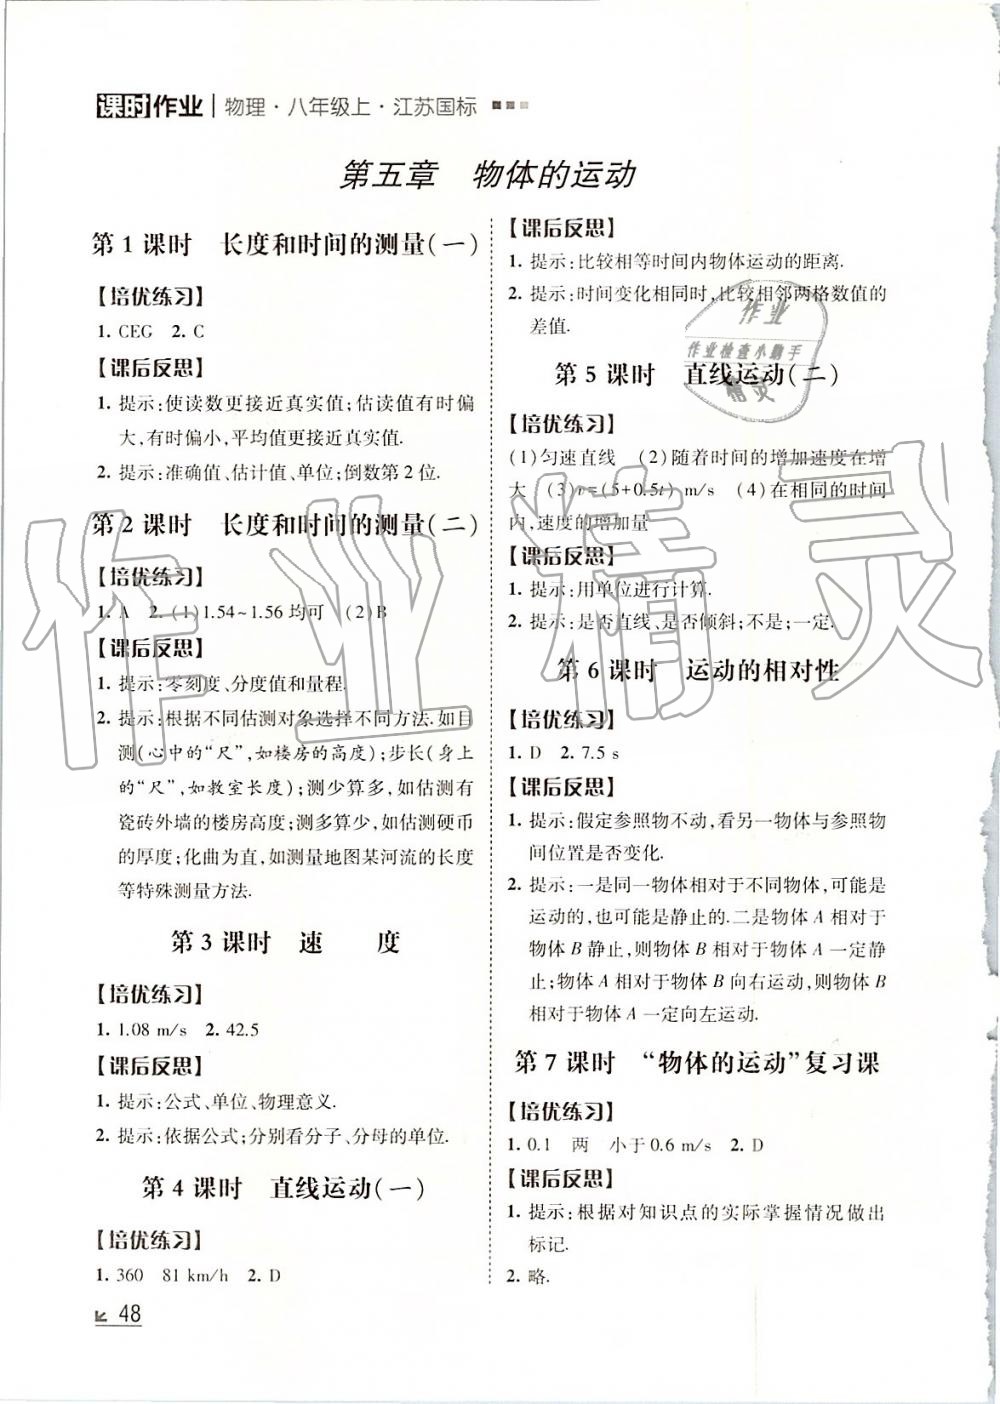 课时作业 物理·八年级上·江苏国标
第五章 物体的运动
第1课时 长度和时间的测量(一)
【培优练习】
1. CEG 2. C
【课后反思】
1. 提示:使读数更接近真实值;估读值有时偏
大,有时偏小,平均值更接近真实值.
2. 提示:准确值、估计值、单位;倒数第2位.
第2课时 长度和时间的测量(二)
【培优练习】
1. A 2. (1)1.54~1.56均可 (2)B
【课后反思】
1. 提示:零刻度、分度值和量程.
2. 提示:根据不同估测对象选择不同方法.如目
测(心中的“尺”,如楼房的高度);步长(身上
的“尺”,如教室长度);测少算多,如估测有
瓷砖外墙的楼房高度;测多算少,如估测硬币
的厚度;化曲为直,如测量地图某河流的长度
等特殊测量方法.
第3课时 速 度
【培优练习】
1. 1.08 m/s 2. 42.5
【课后反思】
1. 提示:公式、单位、物理意义.
2. 提示:依据公式;分别看分子、分母的单位.
第4课时 直线运动(一)
【培优练习】
1. 360 81 km/h 2. D
48
【课后反思】
1. 提示:比较相等时间内物体运动的距离.
2. 提示:时间变化相同时,比较相邻两格数值的
差值.
第5课时 直线运动(二)
【培优练习】
(1)匀速直线 (2)随着时间的增加速度在增
大 (3)v=(5+0.5t) m/s (4)在相同的时间
内,速度的增加量
【课后反思】
1. 提示:用单位进行计算.
2. 提示:是否直线、是否倾斜;不是;一定.
第6课时 运动的相对性
【培优练习】
1. D 2. 7.5 s
【课后反思】
1. 提示:假定参照物不动,看另一物体与参照物
间位置是否变化.
2. 提示:一是同一物体相对于不同物体,可能是
运动的,也可能是静止的.二是物体A相对于
物体B静止,则物体B相对于物体A一定静
止;物体A相对于物体B向右运动,则物体B
相对于物体A一定向左运动.
第7课时 “物体的运动”复习课
【培优练习】
1. 0.1 两 小于0.6 m/s 2. D
【课后反思】
1. 提示:根据对知识点的实际掌握情况做出
标记.
2. 略.
作业
作业检查小助手
精灵
作业精灵